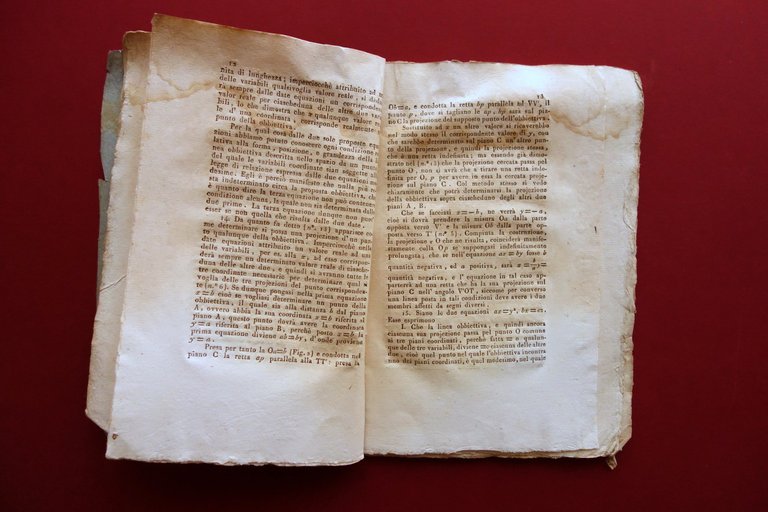 12
nita di lunghezza; imperciocchè attribuito ad
delle variabili qualsivoglia valore reale, si
ra sempre dalle date equazioni un corrisponden
valore reale per ciascheduna delle altre due
bili, lo che dimostra che a qualunque valore
le d' una coordinata, corrisponde realmente
punto della obbiettiva.
Per la qual cosa dalle due sole proposte equa
zioni abbiamo potuto conoscere ogni condizione
lativa alla forma, posizione, e grandezza della
nea obbiettiva descritta nello spazio da un punto
del quale le variabili coordinate sian soggette
legge di relazione espressa dalle due equazioni
desime. Egli è perciò manifesto che nulla più
sta indeterminato circa la proposta obbiettiva, che
è quanto dire la terza equazione non può contenere
condizione alcuna, la quale non sia determinata dalle
due prime. La terza equazione dunque non può
esser se non quella che risulta dalle due date.
14. Da quanto fu detto (n.° 12) apparisce co
me determinare si possa una projezione d'un pun
to qualunque della obbiettiva. Imperciocchè nelle
date equazioni attribuito un valore reale ad una
delle variabili, per es. alla x, ad esso corrispon
derà sempre un determinato valore reale di ciasche
duna delle altre due, e quindi si avranno tutte le
tre coordinate necessarie per determinare qual si
voglia delle tre projezioni del punto corrisponden
te (n.° 6). Se dunque pongasi nella prima equazione
x=b cioè se vogliasi determinare un punto della
obbiettiva, il quale sia alla distanza b dal piano
A, ovvero abbia la sua coordinata x=b riferita al
piano A, questo punto dovrà avere la coordinata
y=a riferita al piano B, perchè posto x=b la
prima equazione diviene ab=by, d'onde proviene
y=a.
Presa per tanto la Oa=b (Fig. 2) e condotta nel
piano C la retta ap parallela alla TT': presa la
13
Ob=a, e condotta la retta bp parallela ad VV', il
punto p, dove si tagliano le ap, bp sarà sul pia-
no C la projezione del supposto punto dell'obbiettiva.
Sostituito ad x un altro valore si ricaverebbe
nel modo stesso il corrispondente valore di y, cosa
che sarebbe determinato sul piano C un'altro punto
della projezione, e quindi la projezione stessa,
che è una retta indefinita; ma essendo già dimo-
strato nel (n.° 12) che la projezione cercata passa pel
punto O, non si avrà che a tirare una retta inde-
finita per O, p per avere in essa la cercata projezione
sul piano C. Col metodo stesso si vede
chiaramente che potrà determinarsi la projezione
della obbiettiva sopra ciascheduno degli altri due
piani A, B.
Che se facciasi x=-b, ne verrà y=-a,
cioè si dovrà prendere la misura Oa dalla parte
opposta verso V' e la misura Ob dalla parte op-
posta verso T' (n.° 5). Compiuta la costruzione,
la projezione p O che ne risulta, coinciderà manifesta-
mente colla Op se suppongasi indefinitamente
prolungata; che se nell'equazione ax=by fosse b
quantità negativa, ed a positiva, sarà
negativa, e l'equazione in tal caso appar-
terrà ad una retta che ha la sua projezione sul
piano C nell'angolo V'OT, siccome per converso
una linea posta in tali condizioni deve avere i due
membri affetti da segni diversi.
15. Siano le due equazioni ax=y², bz=
Esse esprimono
I. Che la linea obbiettiva, e quindi ancora
ciascuna sua projezione passa pel punto O comune
ai tre piani coordinati, perchè fatta = o qualun-
que delle tre variabili, diviene =o ciascuna delle altre
due, cioè quel punto nel quale l'obbiettiva incontra
uno dei piani coordinati, è quel medesimo, nel quale